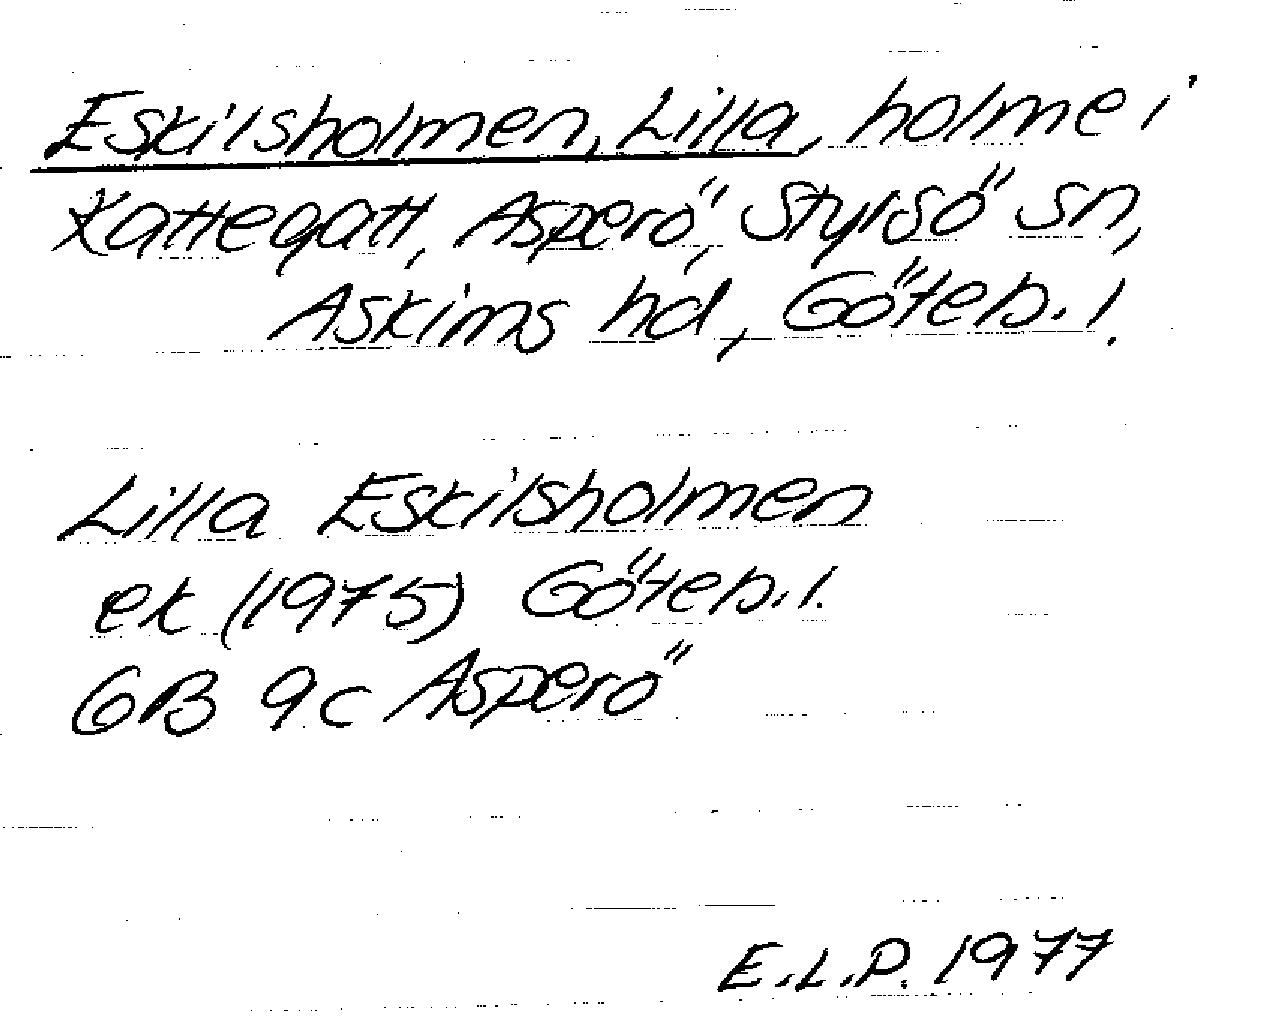 Eskilsholmen, Lilla, holme i
Kattegatt, Asperö, Styrsö sn,
Askims hd, Göteb. l.
Lilla Eskilsholmen
ek (1975) Göteb. l.
GB 9c Asperö
E.L.P. 1977